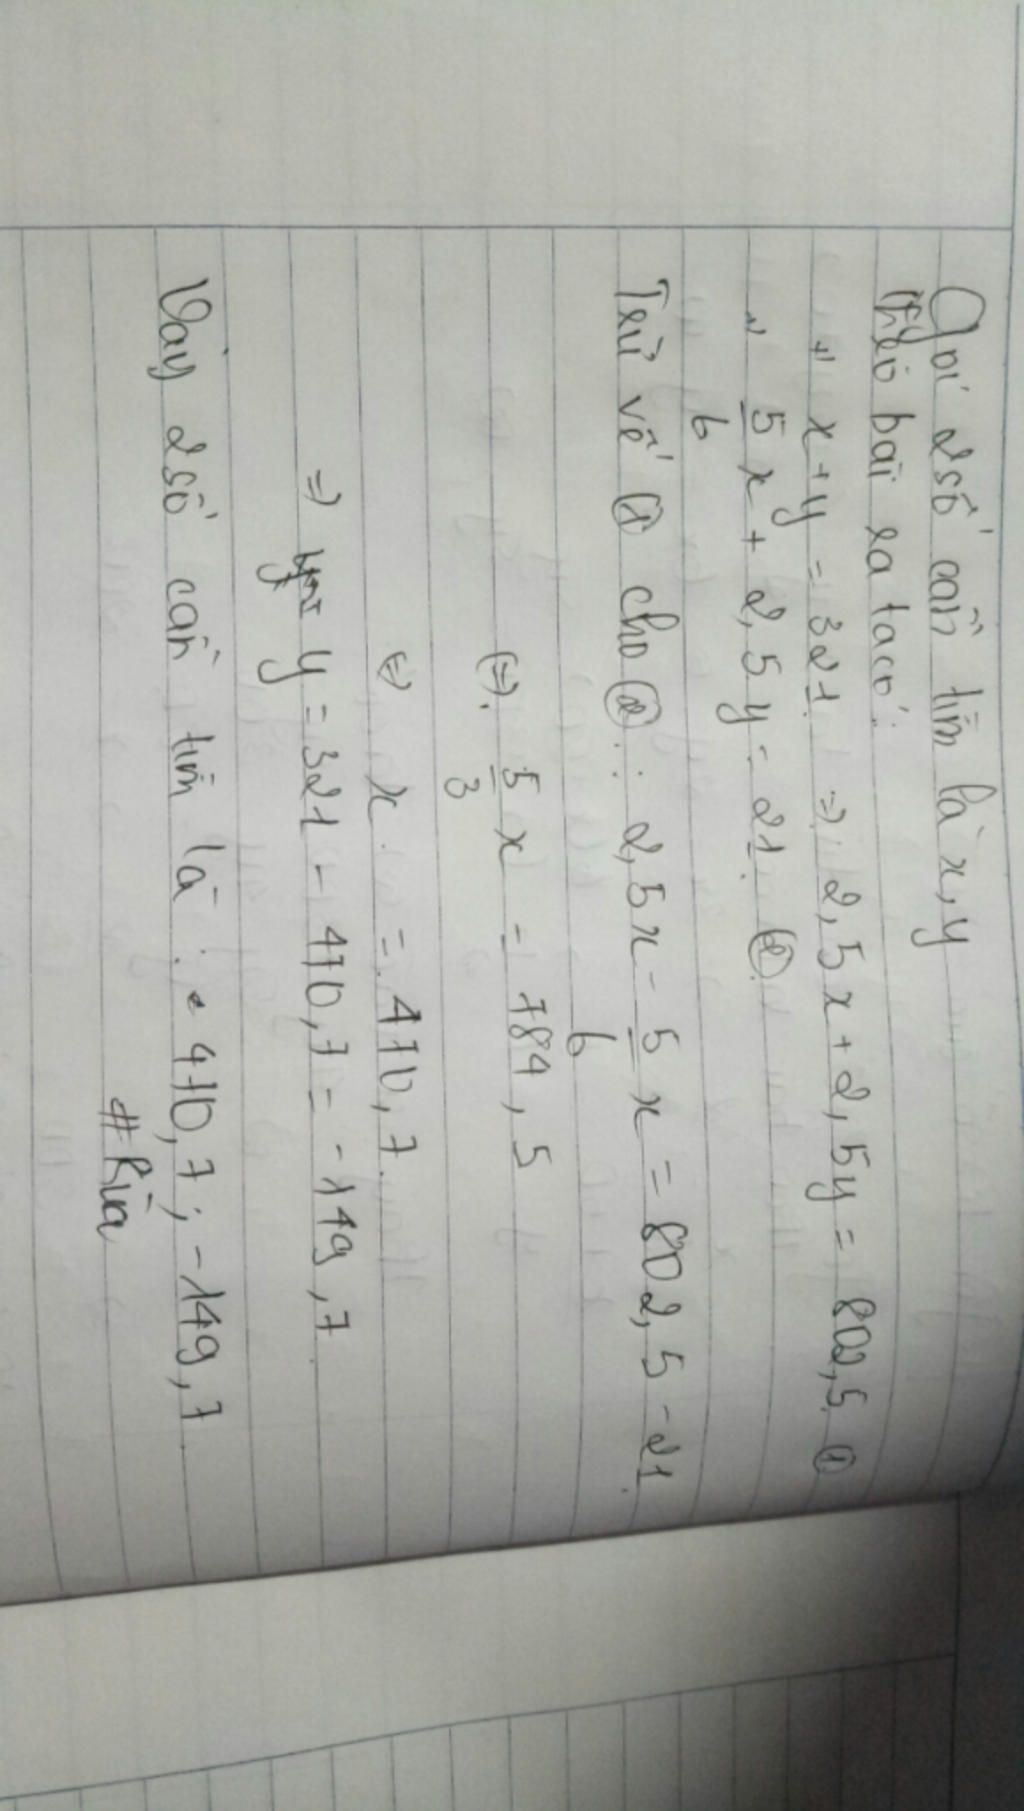 Gọi 2 số cần tìm là x, y
Theo bài ra ta có:
+) x + y = 321 => 2,5x + 2,5y = 802,5 ①
+) 5/6 x + 2,5y = 21. ②
Trừ vế ① cho ② : 2,5x - 5/6 x = 802,5 - 21.
(=) 5/3 x = 784,5
(=) x = 470,7.
=> y = 321 - 470,7 = -149,7.
Vậy 2 số cần tìm là : 470,7 ; -149,7
#Rùa